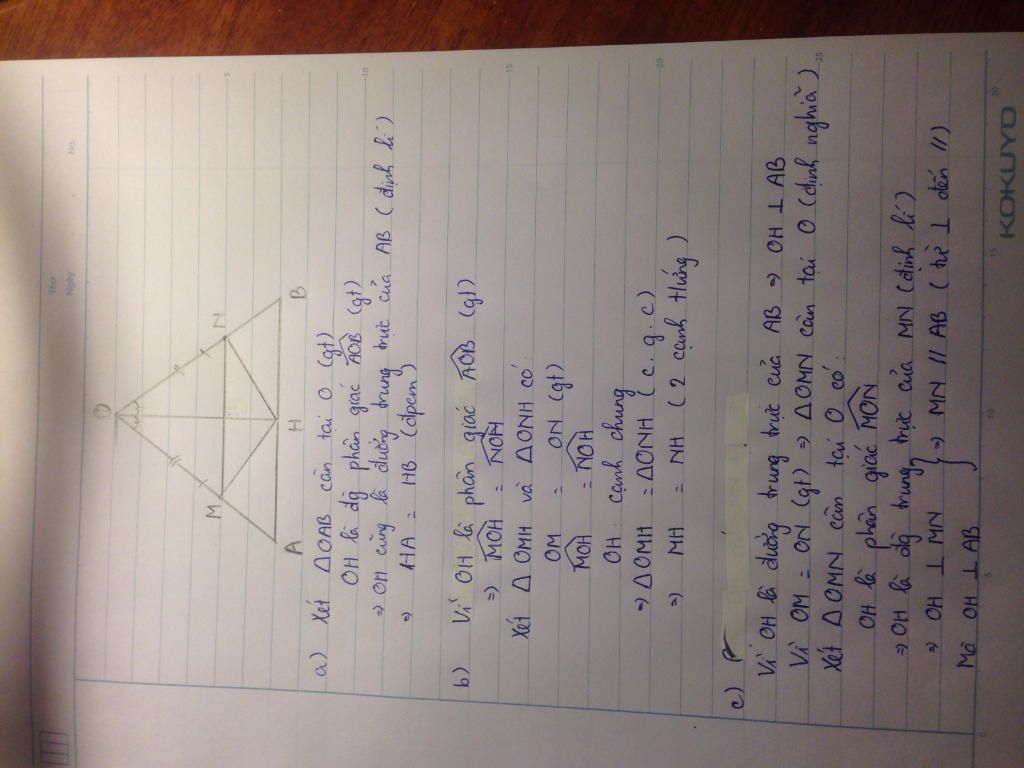 No.
Thứ
Ngày
O
M
N
A
H
B
a) Xét ΔOAB cân tại O (gt)
OH là đg phân giác AOB (gt)
⇒ OH cũng là đường trung trực của AB (định lí)
⇒ HA = HB (đpcm)
b) Vì OH là phân giác AOB (gt)
⇒ MOH = NOH
Xét ΔOMH và ΔONH có:
OM = ON (gt)
MOH = NOH
OH: cạnh chung
⇒ ΔOMH = ΔONH (c.g.c)
⇒ MH = NH (2 cạnh tứng)
c)
Vì OH là đường trung trực của AB ⇒ OH ⊥ AB
Vì OM = ON (gt) ⇒ ΔOMN cân tại O (định nghĩa)
Xét ΔOMN cân tại O có:
OH là phân giác MON
⇒ OH là đg trung trực của MN (định lí)
⇒ OH ⊥ MN } ⇒ MN // AB (từ ⊥ đến //)
Mà OH ⊥ AB
5
10
15
20
25
0
5
10
15
20
KOKUYO